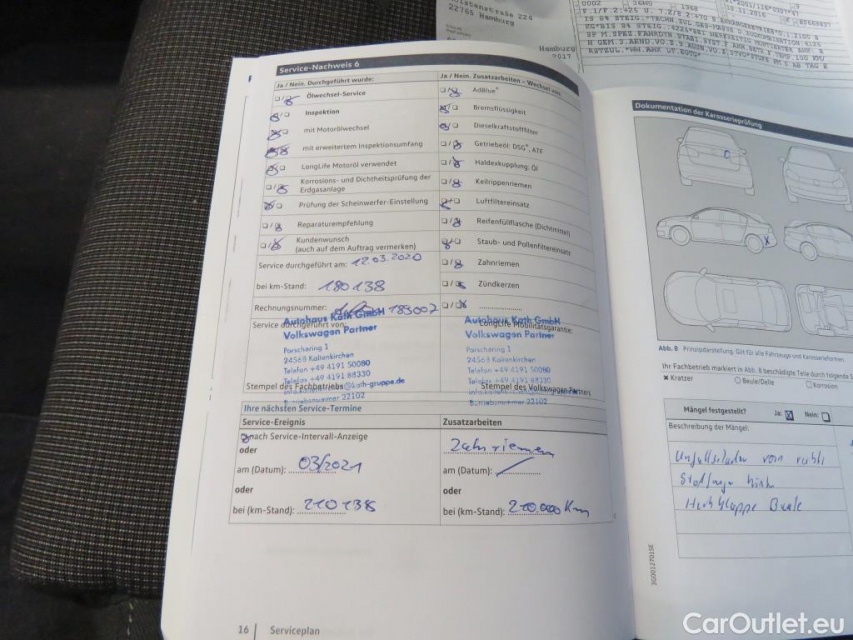 22765 Hamburg
Hamburg
Service-Nachweis 6
Ja / Nein. Durchgeführt wurde:
Ja / Nein. Zusatzarbeiten – Wechsel von:
Ölwechsel-Service
AdBlue®
Inspektion
Bremsflüssigkeit
mit Motorölwechsel
Dieselkraftstofffilter
mit erweitertem Inspektionsumfang
Getriebeöl: DSG®, ATF
LongLife Motoröl verwendet
Haldexkupplung: Öl
Korrosions- und Dichtheitsprüfung der
Erdgasanlage
Keilrippenriemen
Prüfung der Scheinwerfer-Einstellung
Luftfiltereinsatz
Reparaturempfehlung
Reifenfüllflasche (Dichtmittel)
Kundenwunsch
(auch auf dem Auftrag vermerken)
Staub- und Pollenfiltereinsatz
Service durchgeführt am: 12.03.2020
Zahnriemen
bei km-Stand: 180138
Zündkerzen
Rechnungsnummer: 183002
Service durchgeführt von:
LongLife Mobilitätsgarantie:
Autohaus Kath GmbH
Volkswagen Partner
Porschering 1
24568 Kaltenkirchen
Telefon +49 4191 50080
Telefax +49 4191 88330
Betriebsnummer 22102
Autohaus Kath GmbH
Volkswagen Partner
Porschering 1
24568 Kaltenkirchen
Telefon +49 4191 50080
Telefax +49 4191 88330
Betriebsnummer 22102
Stempel des Fachbetriebs
Stempel des Volkswagen Partners
Ihre nächsten Service-Termine
Service-Ereignis
Zusatzarbeiten
nach Service-Intervall-Anzeige
Zahnriemen
oder
am (Datum): 03/2021
am (Datum):
oder
oder
bei (km-Stand): 210138
bei (km-Stand): 210.000 Km
16 Serviceplan
Dokumentation der Karosserieprüfung
Abb. 8 Prinzipdarstellung. Gilt für alle Fahrzeuge und Karosserieformen
Ihr Fachbetrieb markiert in Abb. 8 beschädigte Teile durch folgende
Kratzer
Beule/Delle
Korrosion
Mängel festgestellt?
Ja:
Nein:
Beschreibung der Mängel:
Unfallschaden vorn rechts
Stoßfänger hinten
Heckklappe Beule
CarOutlet.eu